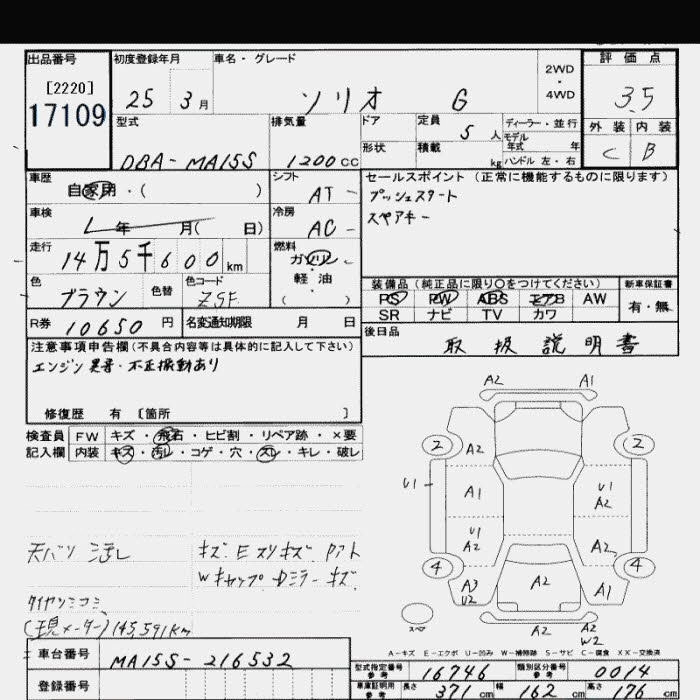 出品番号 初度登録年月 車名・グレード 2WD・4WD 評価点
[2220]
17109
25 3月 ソリオ G 3.5
型式 排気量 ドア 定員 5人 ディーラー・並行 外装 内装
モデル年式 年
形状 積載 kg ハンドル 左・右 C B
DBA-MA15S 1200cc
車歴 自家用・( ) シフト AT セールスポイント (正常に機能するものに限ります)
プッシュスタート
スペアキー
車検 年 月( 日) 冷房 AC
走行 14万5千600km 燃料 ガソリン
軽油
( )
色 ブラウン 色替 色コード ZSF
装備品 (純正品に限り○をつけてください) 新車保証書
PS PW ABS エアB AW 有・無
SR ナビ TV カワ
R券 10650円 名変通知期限 月 日 後日品
取扱説明書
注意事項申告欄(不具合内容等は具体的に記入して下さい)
エンジン異音・不正振動あり
修復歴 有 [箇所 ]
検査員 FW キズ・飛石・ヒビ割・リペア跡・×要
記入欄 内装 キズ・汚れ・コゲ・穴・スレ・キレ・破レ
A2 A1
2 A2 2
U1 A1 U1 A2
U1 A2 A2
4 A3 U2 A2 A1 4
A2 A2 W2
スペア
天バリ 汚レ
キズ Eスリキズ
Wキャップ Dミラーキズ
(現メーター)145,591km
A-キズ E-エクボ U-凹み W-補修跡 S-サビ C-腐食 XX-交換済
車台番号 MA15S-216532
登録番号
型式指定番号 参考 16746 類別区分番号 参考 0014
車庫証明用 参考 長さ 371cm 幅 162cm 高さ 176cm